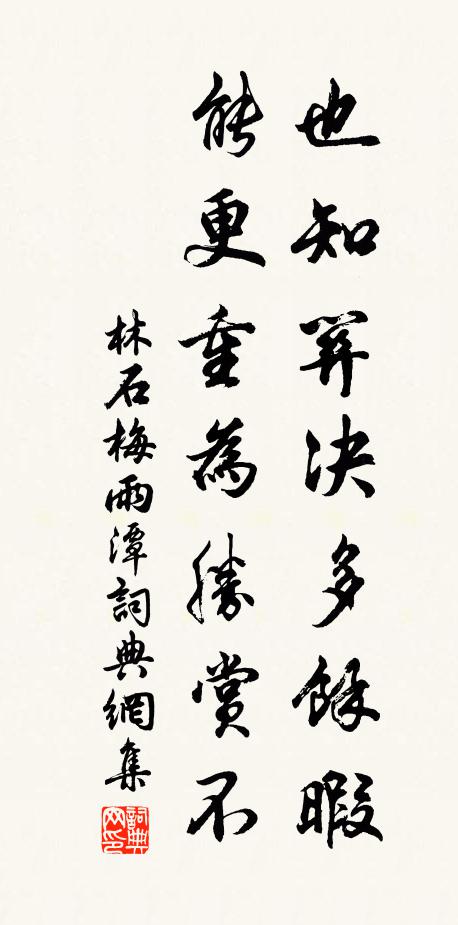 也知關決多餘暇
能更重為勝賞不
林石梅雨潭詞典網集
詞典
网印